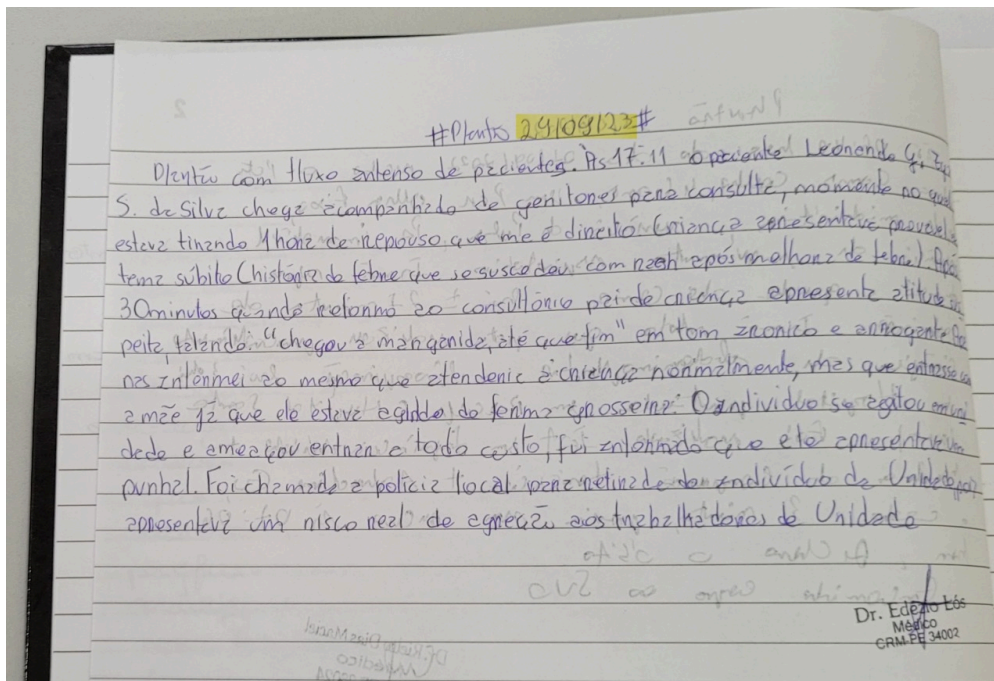 #Plantão 29/09/23#
Plantão com fluxo intenso de pacientes. Às 17:11 o paciente Leonardo G.
S. da Silva chega acompanhado de genitores para consulta, momento no qual
estava tirando 1 hora de repouso que me é direito. Criança apresentava
tema súbito (história de febre que se sucedeu com rash após melhora da febre). Após
30 minutos quando retorno ao consultório pai da criança apresenta atitude
peita, falando "chegou a margarida, até que fim" em tom irônico e arrogante.
nas informei ao mesmo que atenderia a criança normalmente, mas que entrasse
a mãe já que ele estava agindo de forma grosseira. O indivíduo se agitou em
dade e ameaçou entrar a todo custo, fui informado que ele apresentava um
punhal. Foi chamada a polícia local para retirada do indivíduo da Unidade
apresentava um risco real de agressão aos trabalhadores da Unidade
Dr. Edézio Lós
Médico
CRM-PE 34002